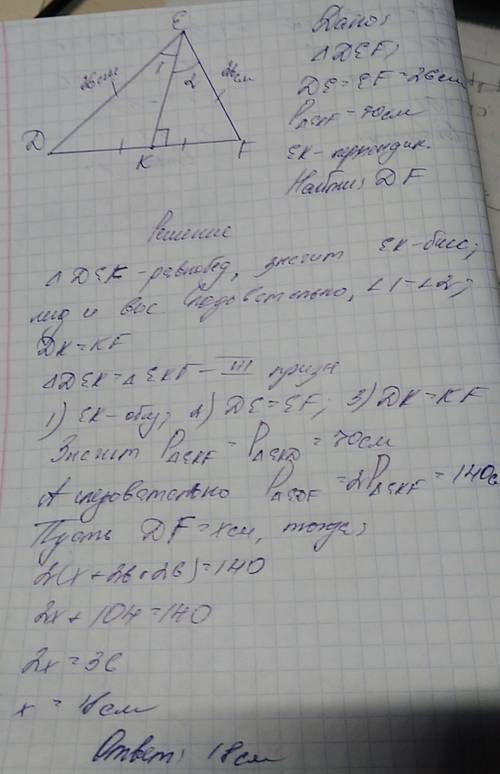 E
26см
1
2
26см
D
K
F
Дано:
△DEF;
DE = EF = 26см
P△EKF = 70см
EK - перпендик.
Найти: DF
Решение
△DEK - равнобед, значит EK - бисс;
мед и выс следовательно, ∠1 = ∠2;
DK = KF
△DEK = △EKF - III призн
1) EK - общ; 2) DE = EF; 3) DK = KF
Значит P△EKF = P△EKD = 70см
А следовательно P△EDF = 2P△EKF = 140см
Пусть DF = xсм, тогда:
2(x + 26 + 26) = 140
2x + 104 = 140
2x = 36
x = 18см
Ответ: 18см